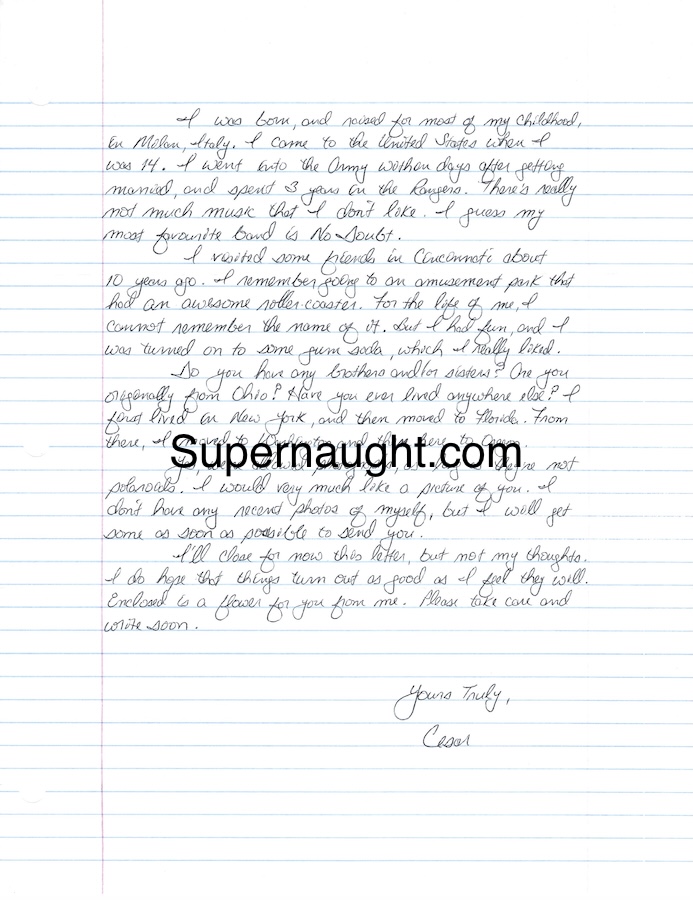 I was born, and raised for most of my childhood,
in Milan, Italy. I came to the United States when I
was 14. I went into the Army within days after getting
married, and spent 3 years in the Rangers. There's really
not much music that I don't like. I guess my
most favourite band is No Doubt.
I visited some friends in Cincinnati about
10 years ago. I remember going to an amusement park that
had an awesome roller-coaster. For the life of me, I
cannot remember the name of it. But I had fun, and I
was turned on to some gum soda, which I really liked.
Do you have any brothers and/or sisters? Are you
originally from Ohio? Have you ever lived anywhere else? I
first lived in New York, and then moved to Florida. From
there, I moved to Washington and then here to Oregon.
Supernaught.com
not
polaroids. I would very much like a picture of you. I
don't have any recent photos of myself, but I will get
some as soon as possible to send you.
I'll close for now this letter, but not my thoughts.
I do hope that things turn out as good as I feel they will.
Enclosed is a flower for you from me. Please take care and
write soon.
Yours Truly,
Cesar